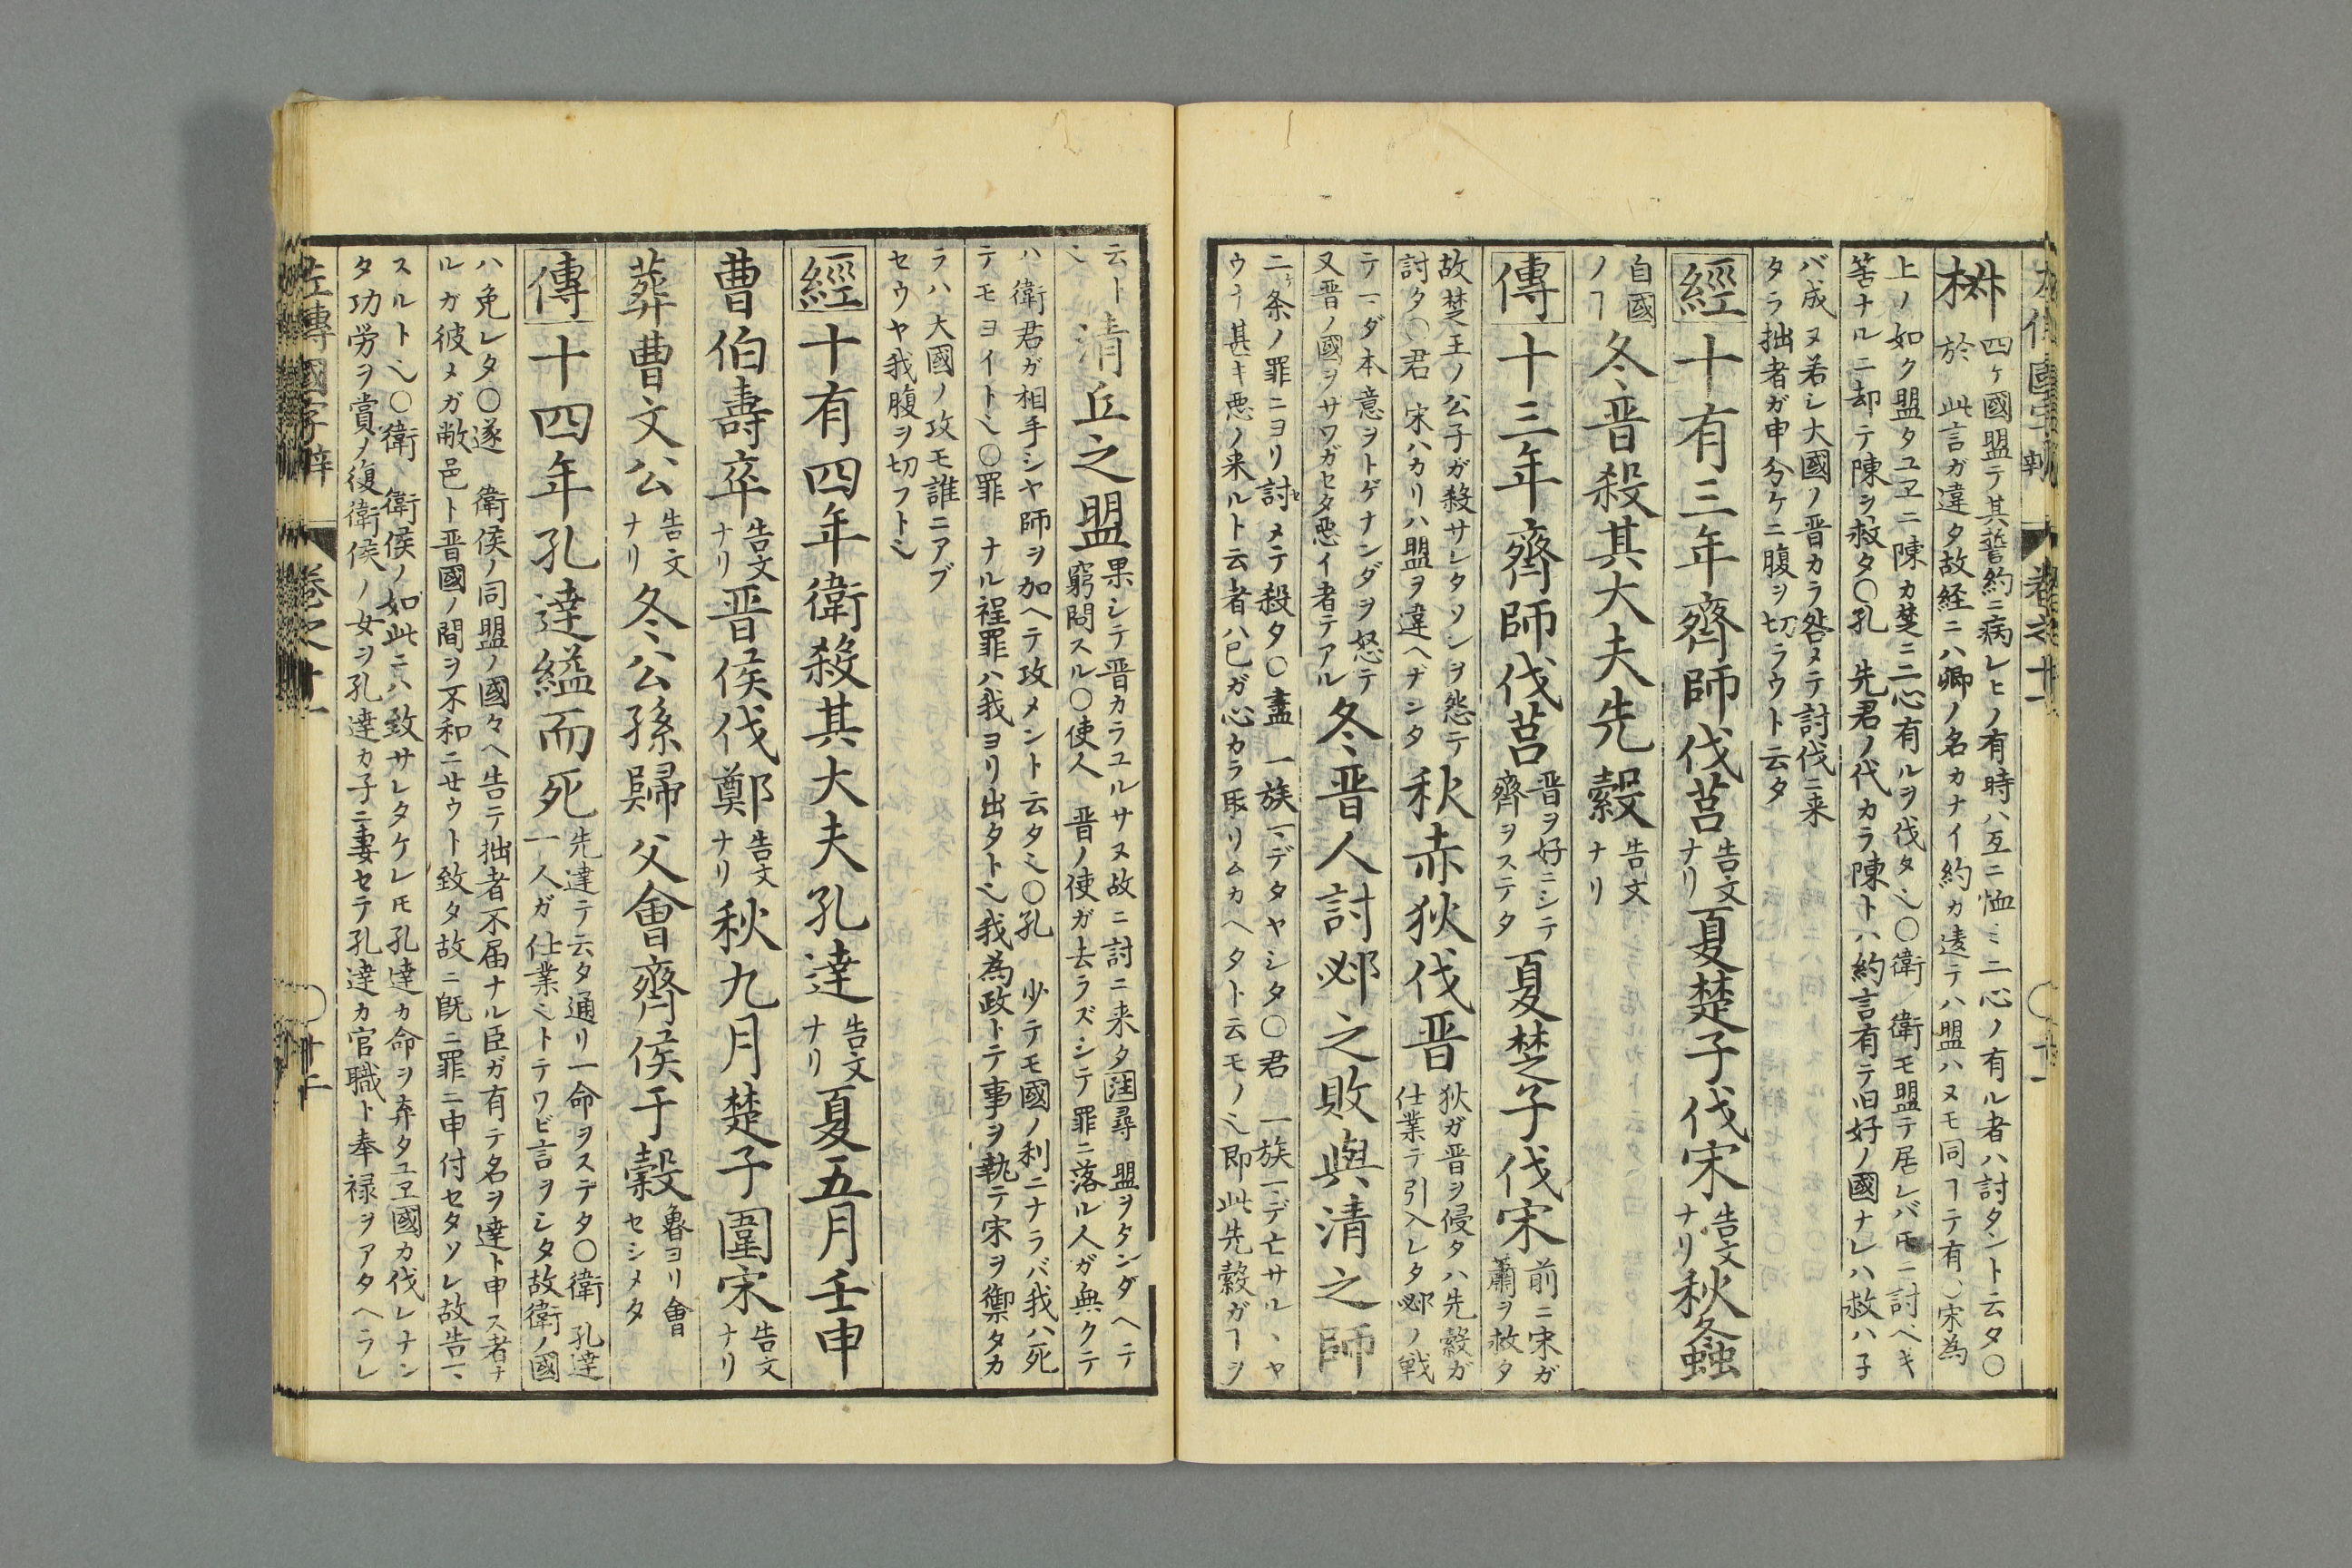 四ケ國盟テ其誓約ニ病レヒノ有時ハ互ニ恤ミ二心ノ有ル者ハ討タント云タ〇
於 此言ガ違タ故経ニハ卿ノ名カナイ約カ違テハ盟ハヌモ同ヿテ有〇宋為
上ノ如ク盟タユヱニ陳カ楚ニ二心有ルヲ伐タ〇衛 衛モ盟テ居レバ討ベキ
筈ナルニ却テ陳ヲ救タ〇孔 先君ノ代カラ陳トハ約言有テ旧好ノ國ナレハ救ハ子
バ成ヌ若シ大國ノ晋カラ咎メテ討伐ニ来
タラ拙者ガ申分ケニ腹ヲ切ラウト云タ
經十有三年齊師伐莒告文ナリ夏楚子伐宋告文ナリ秋螽
自國ノヿ冬晋殺其大夫先縠告文ナリ
傳十三年齊師伐莒晋ヲ好ニシテ齊ヲステタ夏楚子伐宋前ニ宋ガ蕭ヲ救タ
故楚王ノ公子ガ殺サレタソンヲ怨テ
討タ〇君 宋ハカリハ盟ヲ違ヘナンタ
秋赤狄伐晋狄ガ晋ヲ侵タハ先縠ガ仕業テ引入レタ邲ノ戦
テマダ本意ヲトゲナンダヲ怒テ
又晋ノ國ヲサワガセタ悪イ者テアル
冬晋人討邲之敗與清之師
二ケ条ノ罪ニヨリ討メテ殺タ〇盡 一族マデタヤシタ〇君 一族マデ亡サル、ヤ
ウナ甚キ悪ノ来ルト云者ハ已ガ心カラ取リムカヘタト云モノ即此先縠ガヿヲ
云ト
清丘之盟果シテ晋カラユルサヌ故ニ討ニ来タ注尋 盟ヲタンダヘテ
窮問スル〇使人 晋ノ使ガ去ラズシテ罪ニ落ル人ガ無クテ
ハ衛君ガ相手シヤ師ヲ加ヘテ攻メント云タ〇孔 少テモ國ノ利ニナラバ我ハ死
テモヨイト〇罪 ナル程罪ハ我ヨリ出タト我為政トテ事ヲ執テ宋ヲ禦タカ
ラハ大國ノ攻モ誰ニアブ
セウヤ我腹ヲ切フト
經十有四年衛殺其大夫孔達告文ナリ夏五月壬申
曹伯壽卒告文ナリ晋侯伐鄭告文ナリ秋九月楚子圍宋告文ナリ
葬曹文公告文ナリ冬公孫歸父會齊侯于穀魯ヨリ會セシメタ
傳十四年孔達縊而死先達テ云タ通リ一命ヲステタ〇衛 孔達
一人ガ仕業トテワビ言ヲシタ故衛ノ國
ハ免レタ〇遂 衛侯ノ同盟ノ國々ヘ告テ拙者不届ナル臣ガ有テ名ヲ達ト申ス者ナ
ルガ彼メガ敝邑ト晋國ノ間ヲ不和ニセウト致タ故ニ既ニ罪ニ申付セタソレ故告マ
スルト〇衛 衛侯ノ如此ニハ致サレタケレ𪜈孔達カ命ヲ弃タユヱ國カ伐レナン
タ功労ヲ賞ノ復衛侯ノ女ヲ孔達カ子ニ妻セテ孔達カ官職ト奉禄ヲアタヘラレ
左傳國字辯 巻之十一 〇十二